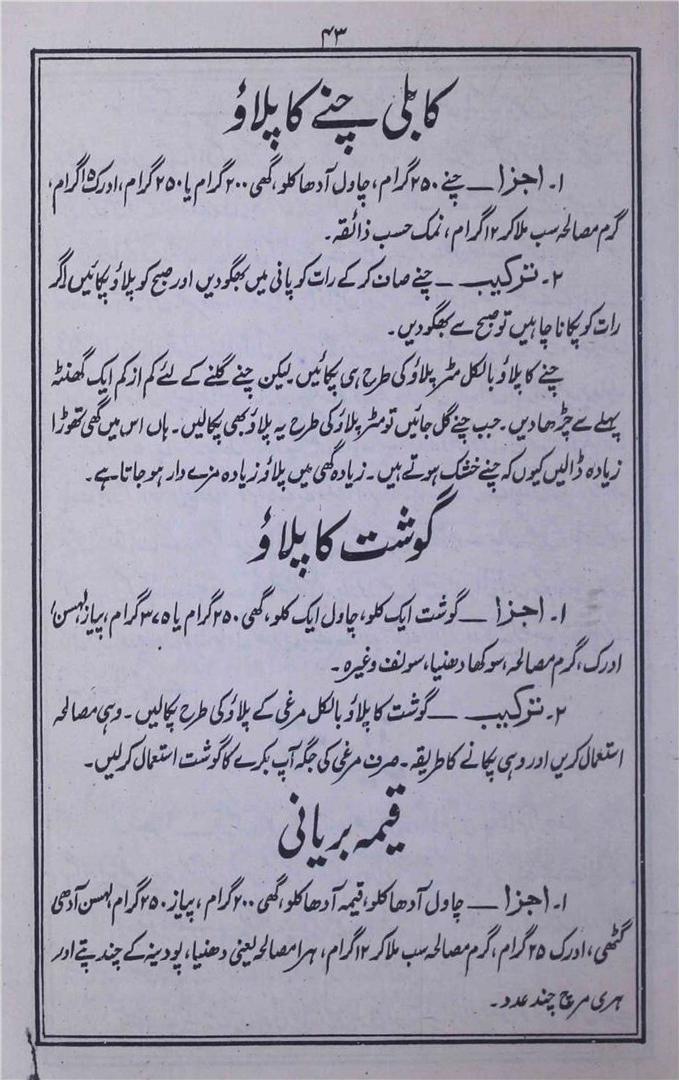 ۴۳
کابلی چنے کا پلاؤ
۱۔ اجزا ـــ چنے ۲۵۰ گرام، چاول آدھا کلو، گھی ۲۰۰ گرام یا ۲۵۰ گرام، ادرک ۱۵ گرام،
گرم مصالحہ سب ملا کر ۱۲ گرام، نمک حسب ذائقہ۔
۲۔ ترکیب ـــ چنے صاف کر کے رات کو پانی میں بھگو دیں اور صبح کو پلاؤ پکائیں اگر
رات کو پکانا چاہیں تو صبح سے بھگو دیں۔
چنے کا پلاؤ بالکل مٹر پلاؤ کی طرح ہی پکائیں لیکن چنے گلنے کے لئے کم از کم ایک گھنٹہ
پہلے سے چڑھا دیں۔ جب چنے گل جائیں تو مٹر پلاؤ کی طرح یہ پلاؤ بھی پکالیں۔ ہاں اس میں گھی تھوڑا
زیادہ ڈالیں کیوں کہ چنے خشک ہوتے ہیں۔ زیادہ گھی میں پلاؤ زیادہ مزے دار ہو جاتا ہے۔
گوشت کا پلاؤ
۱۔ اجزا ـــ گوشت ایک کلو، چاول ایک کلو، گھی ۲۵۰ گرام یا ۳۷۵ گرام، پیاز، لہسن،
ادرک، گرم مصالحہ، سوکھا دھنیا، سولف وغیرہ۔
۲۔ ترکیب ـــ گوشت کا پلاؤ بالکل مرغی کے پلاؤ کی طرح پکالیں۔ وہی مصالحہ
استعمال کریں اور وہی پکانے کا طریقہ۔ صرف مرغی کی جگہ آپ بکرے کا گوشت استعمال کرلیں۔
قیمہ بریانی
۱۔ اجزا ـــ چاول آدھا کلو، قیمہ آدھا کلو، گھی ۲۰۰ گرام، پیاز ۲۵۰ گرام، لہسن آدھی
گٹھی، ادرک ۲۵ گرام، گرم مصالحہ سب ملا کر ۱۲ گرام، ہرا مصالحہ یعنی دھنیا، پودینہ کے چند پتے اور
ہری مرچ چند عدد۔